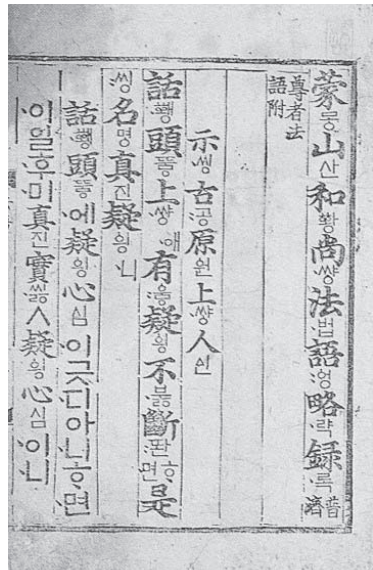 蒙몽山산和ᅘᅪᆼ尚썅法법語ᅌᅥᆼ略략録록普濟
尊者法
語附
示씽古공原ᅌᅯᆫ上썅人ᅀᅵᆫ
話ᅘᅪᆼ頭뚜ᇢ上썅애有ᅌᅮᇢ疑ᅌᅴᆼ不붏斷똰ᄒᆞ면是
씽名명真진疑ᅌᅴᆼ니
話ᅘᅪᆼ頭뚜ᇢ에疑ᅌᅴᆼ心심이긋디아니ᄒᆞ면
이일후미真진實씨ᇙㅅ疑ᅌᅴᆼ心심이니